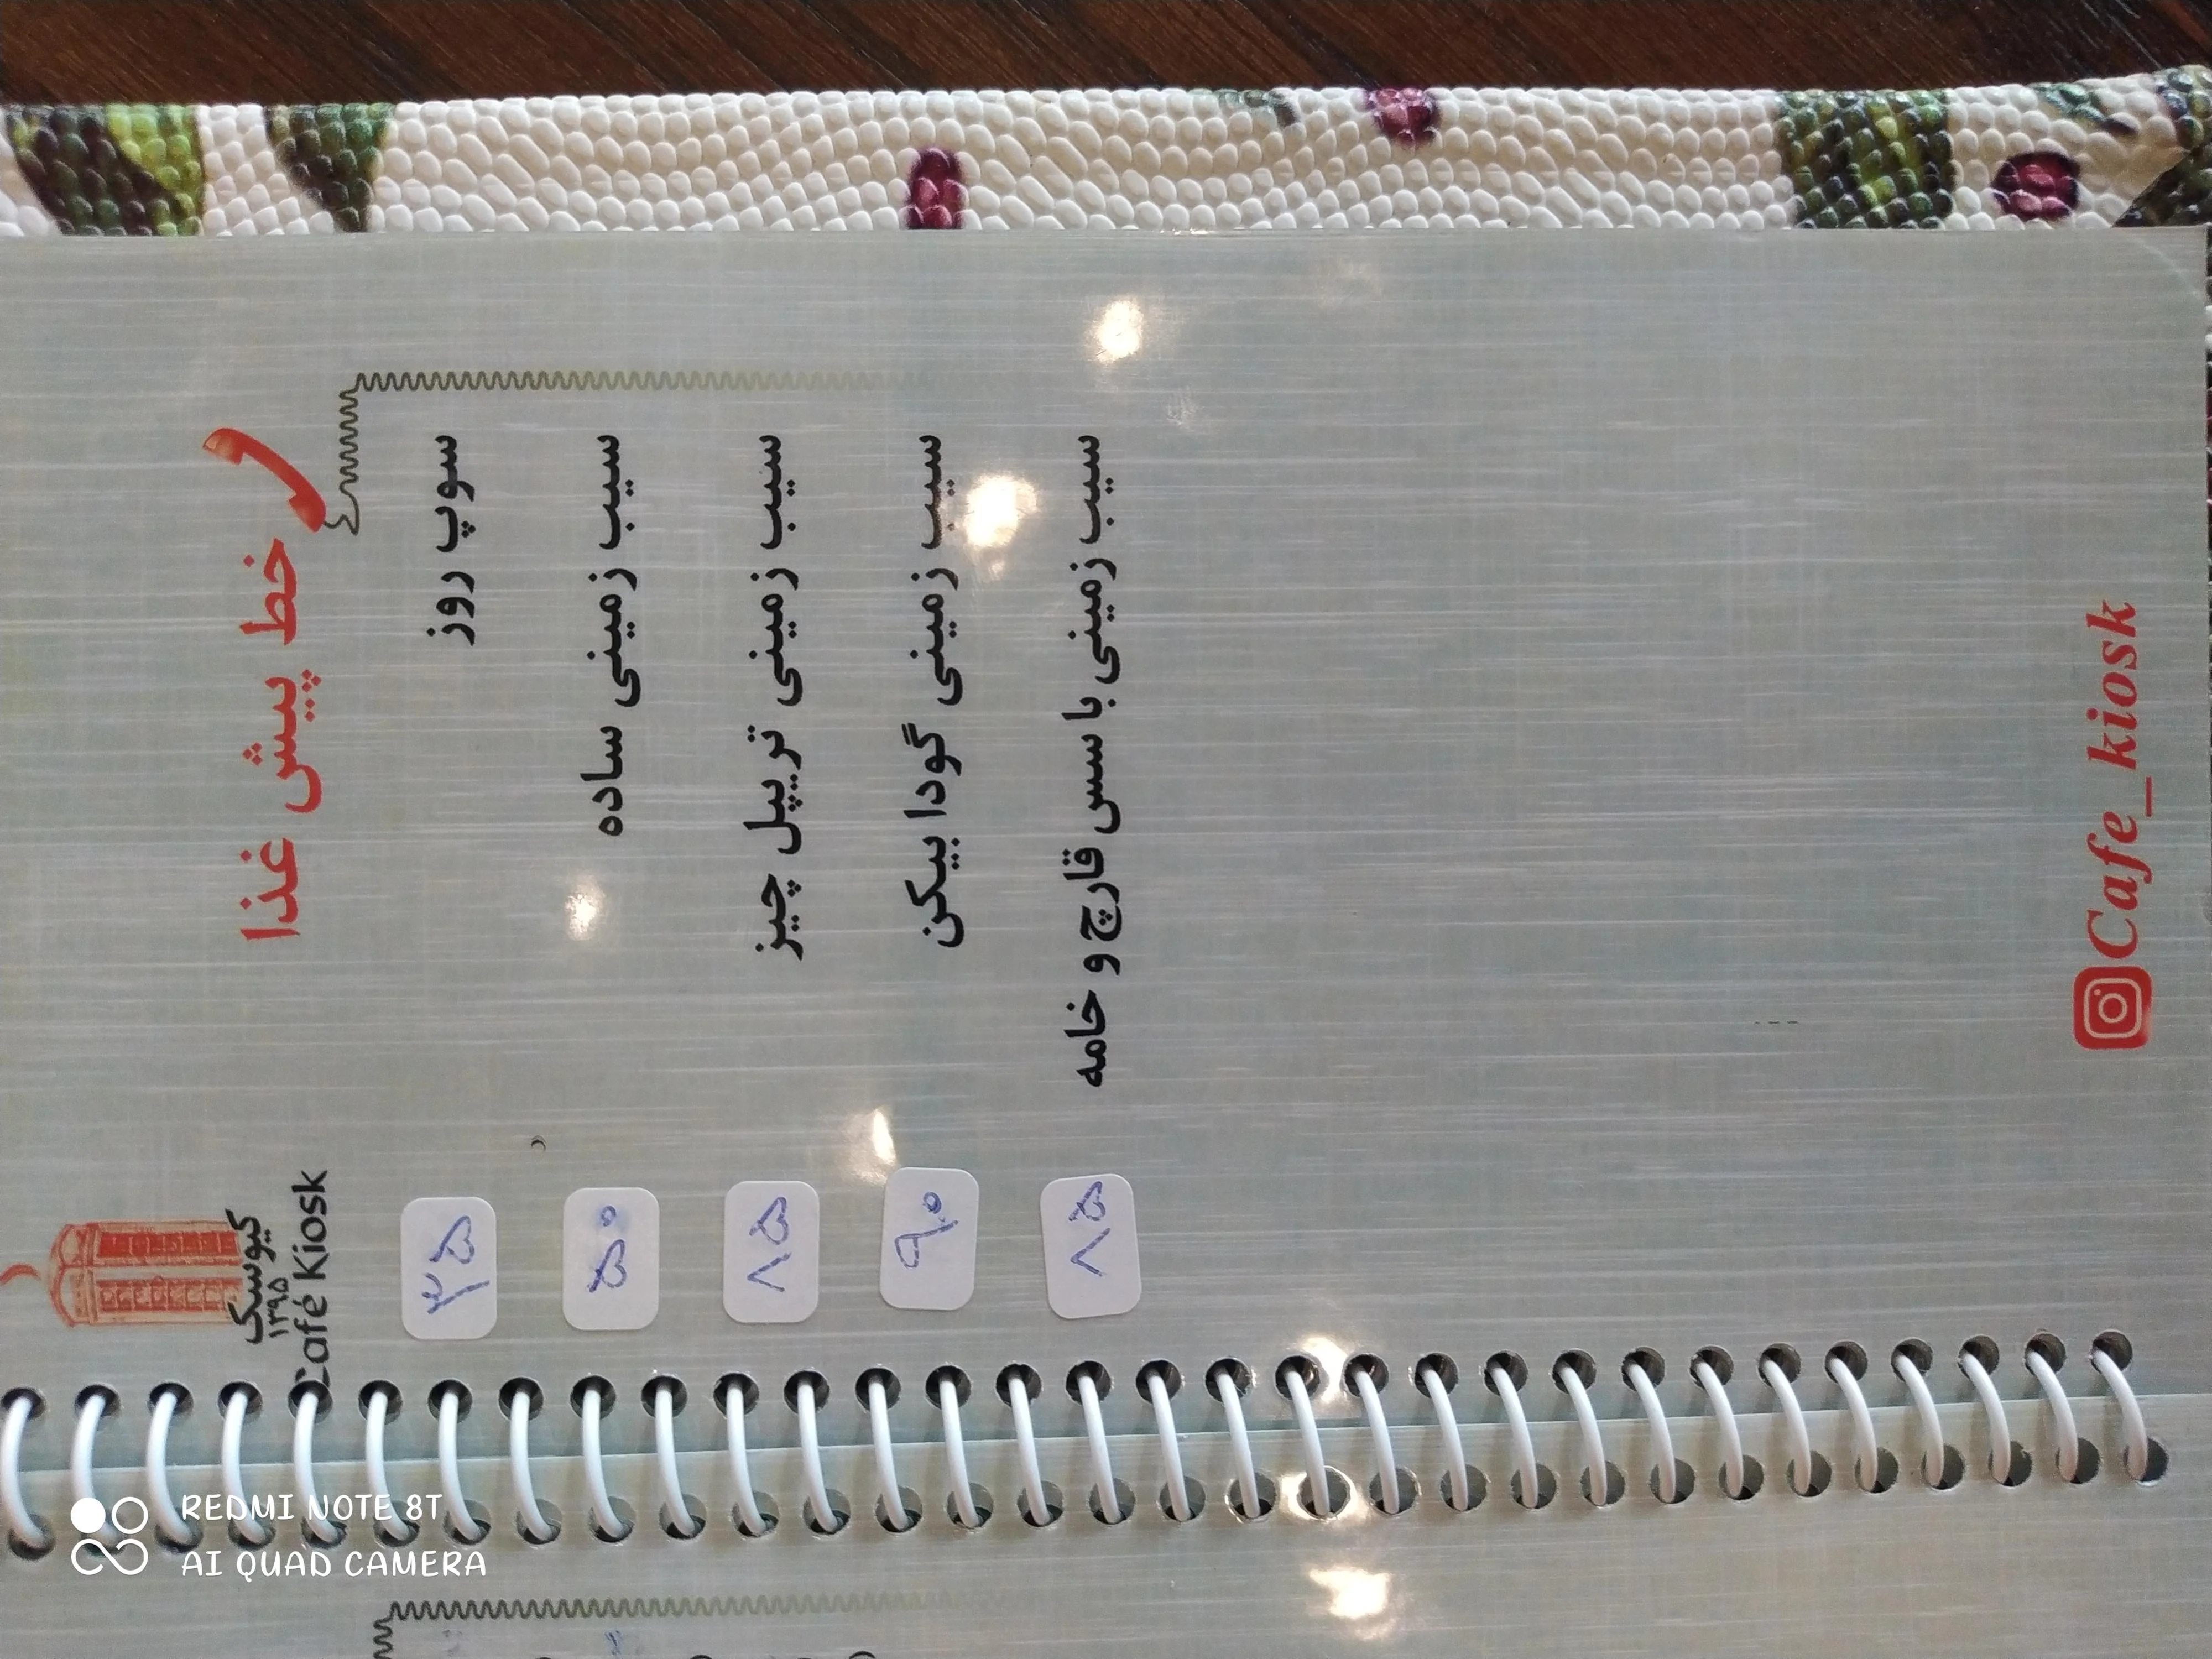 خط پیش غذا
کیوسک
۱۳۹۵
Café Kiosk
سوپ روز ۳۵
سیب زمینی ساده ۵۰
سیب زمینی تریپل چیز ۸۵
سیب زمینی گودا بیکن ۹۰
سیب زمینی با سس قارچ و خامه ۸۵
Cafe_kiosk
REDMI NOTE 8T
AI QUAD CAMERA